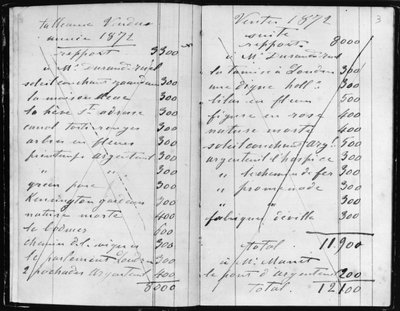 Tableaux Vendus
année 1872
report 3300
à Mr Durand-Ruel
soleil couchant 300
la maison bleue 300
la hève Ste adresse 300
canal toits rouges 300
arbres en fleurs 300
printemps argenteuil 300
" " 300
300
Kensington gardens 300
nature morte 400
le bodmer 600
chemin de la 300
le parlement Londres 300
2 pochades argenteuil 400
8000
3
Ventes 1872
suite
report 8000
à Mr Durand-Ruel
la tamise à Londres 300
une digue holl. 300
lilas en fleurs 500
figure en rose 400
nature morte 400
soleil couchant arg. 500
argenteuil l'hospice 300
" le chemin de fer 300
" promenade 300
" " 300
fabrique déville 300
total 11900
à Mr Manet
le pont d'argenteuil 200
total. 12100